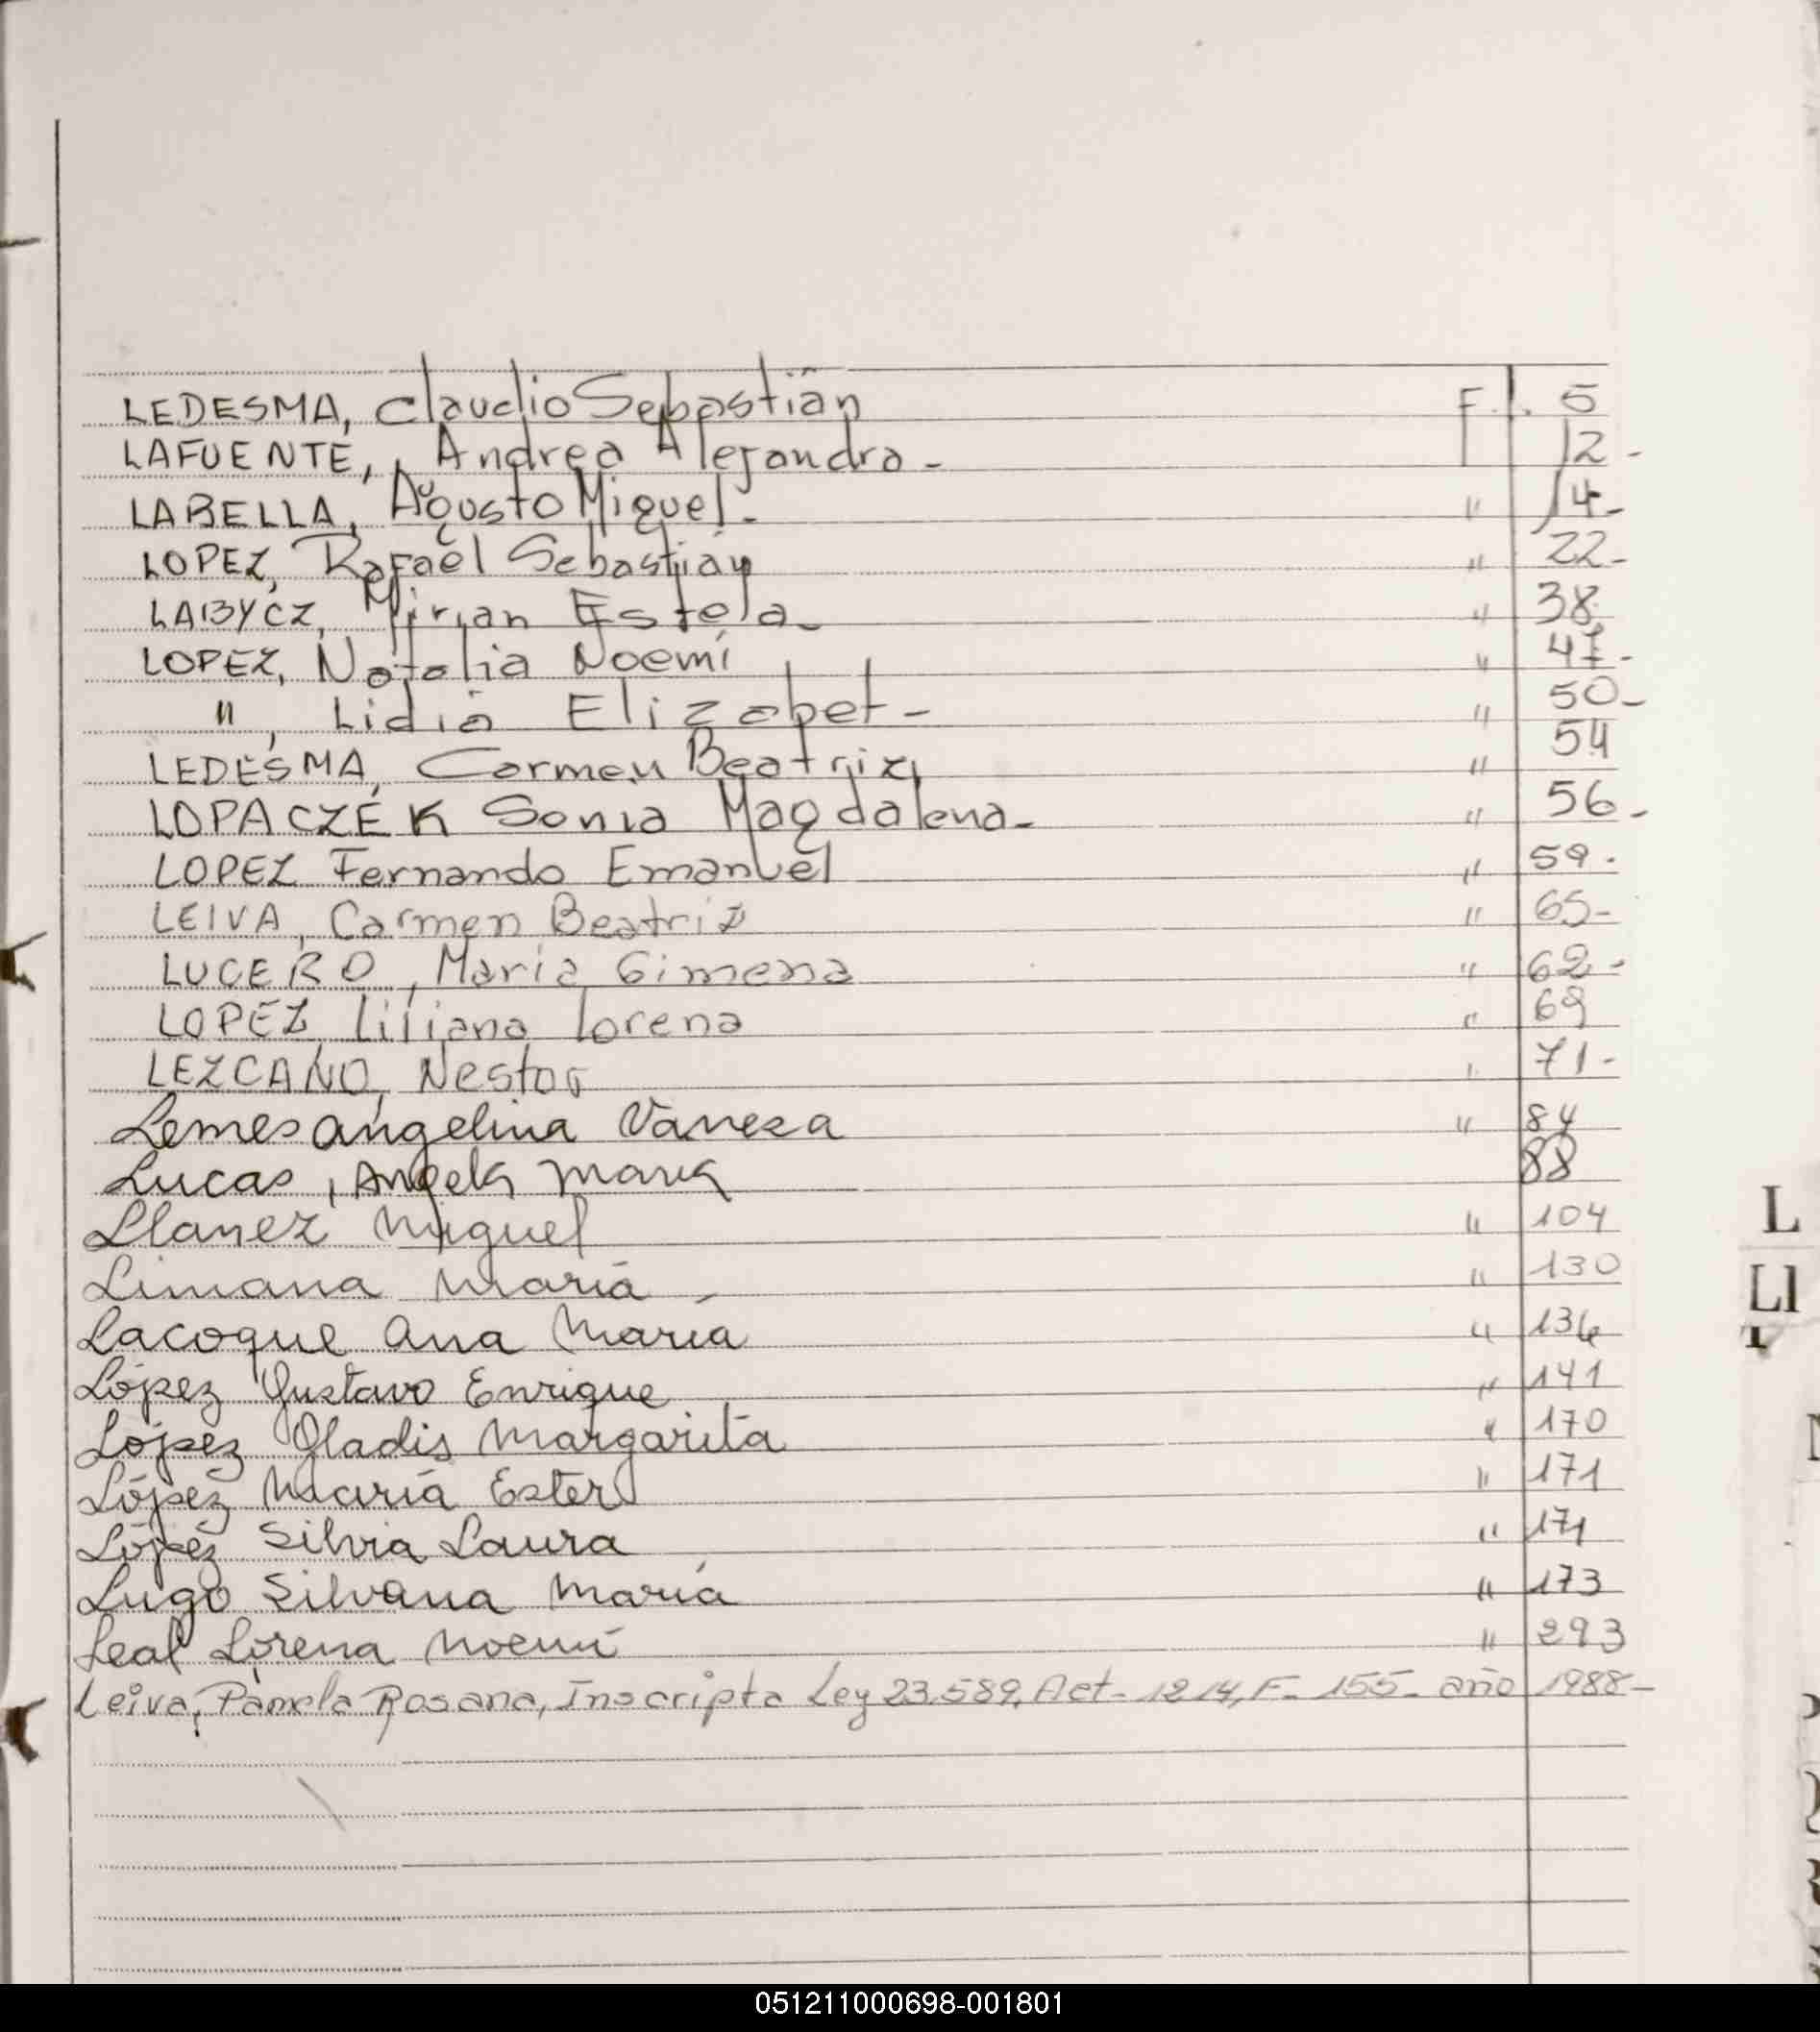 LEDESMA, Claudio Sebastián F. 5
LAFUENTE, Andrea Alejandra - 12 -
LABELLA, Agusto Miguel - " 14 -
LOPEZ, Rafael Sebastián " 22 -
LABYCZ, Mirian Estela - " 38
LOPEZ, Natalia Noemí " 47 -
" , Lidia Elizabet - " 50 -
LEDESMA, Carmen Beatriz " 54
LOPACZEK Sonia Magdalena - " 56 -
LOPEZ Fernando Emanuel " 59 -
LEIVA, Carmen Beatriz " 65 -
LUCERO, Maria Gimena " 62 -
LOPEZ, Liliana Lorena " 69
LEZCANO, Nestor " 71 -
Lemes Angelina Vanesa " 84
Lucas, Angela Maria 88
Llanez Miguel " 104
Limana María " 130
Lacoque Ana María " 136
López Gustavo Enrique " 141
López Gladis Margarita " 170
López María Ester " 171
López Silvia Laura " 171
Lugo Silvana María " 173
Leal Lorena Noemí " 293
Leiva, Pamela Rosana, Inscripta Ley 23.589, Act- 1214, F- 155- año 1988 -
L
Ll
051211000698-001801